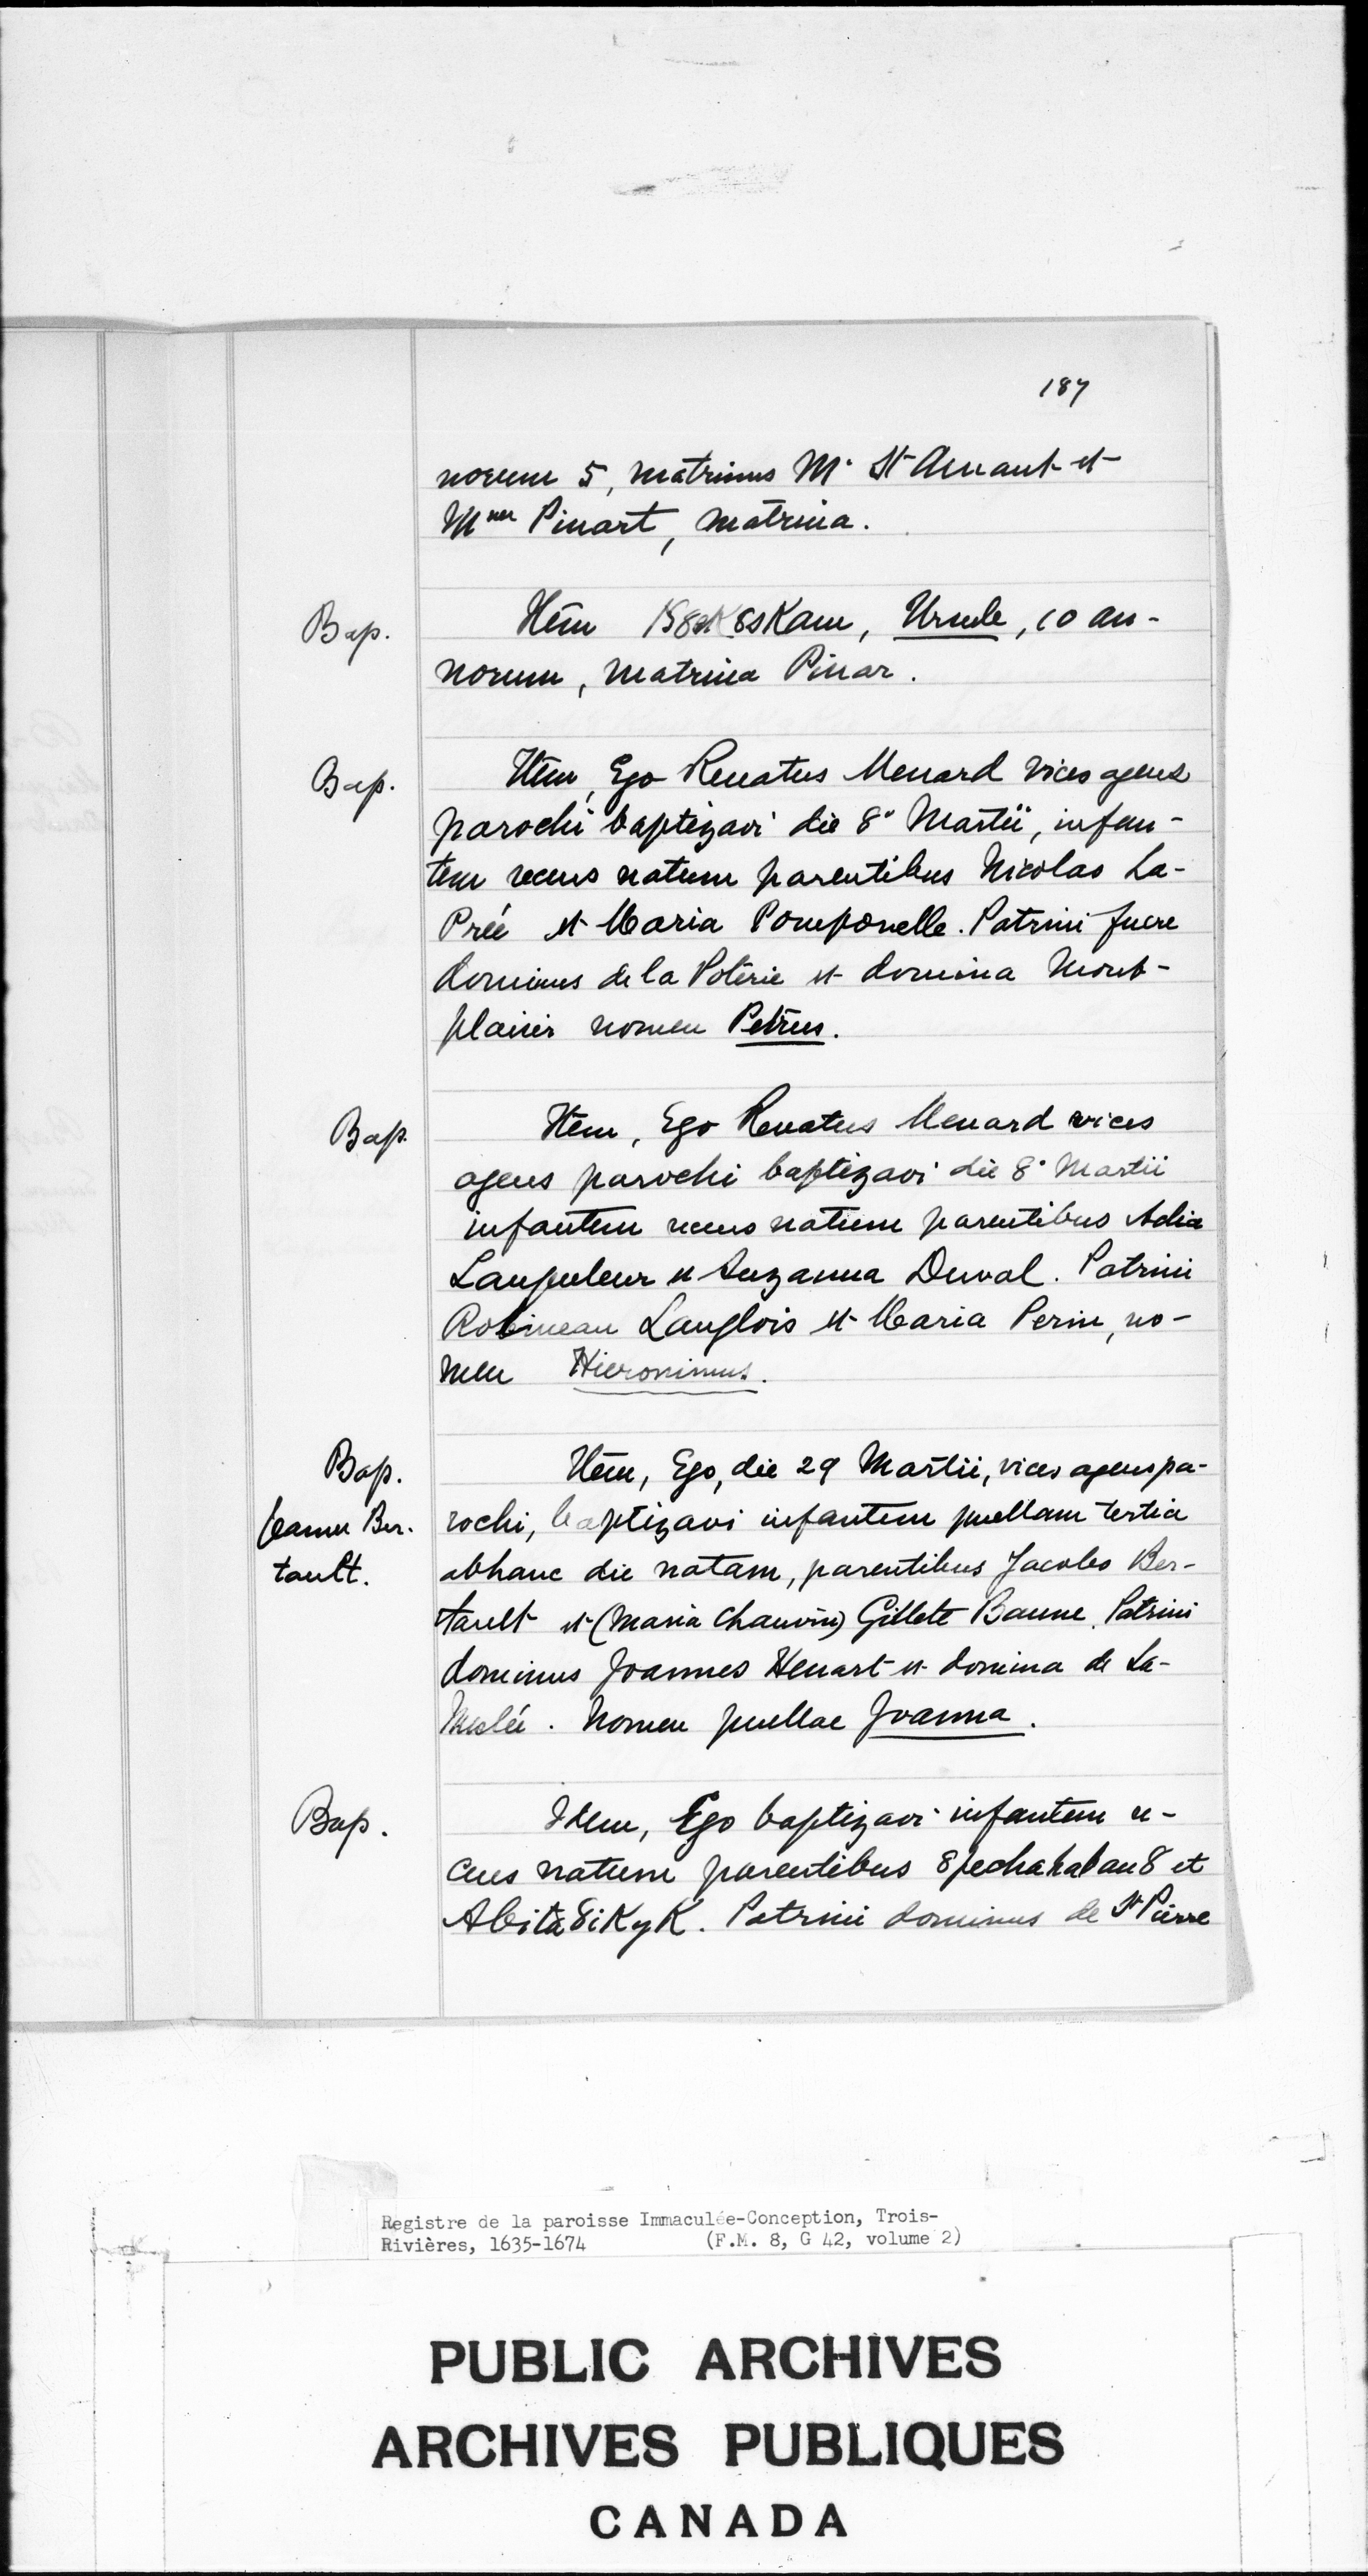 187
norum 5, matrinus Mr St Arnaut et
Mme Pinart, matrina.
Bap.
Item K8ek8sKam, Ursule, 10 an-
norum, matrina Pinar.
Bap.
Item, Ego Renatus Menard vices agens
parochi baptizavi die 8a Martii, infan-
tem recens natum parentibus Nicolao La-
Prée et Maria Pomponelle. Patrini fuere
dominus de la Poterie et domina Mont-
plaisir nomen Petrus.
Bap.
Item, Ego Renatus Menard vices
agens parochi baptizavi die 8a Martii
infantem recens natum parentibus Adia
Lauguleur et Suzanna Duval. Patrini
Robineau Langlois et Maria Perin, no-
men Hieronimus.
Bap.
Jeanne Ber-
tault.
Item, Ego, die 29 Martii, vices agens pa-
rochi, baptizavi infantem puellam tertia
abhanc die natam, parentibus Jacobo Ber-
tault et (Maria Chauvin) Gillete Banne. Patrini
dominus Joannes Henart et domina de La-
Meslée. Nomen puellae Joanna.
Bap.
Idem, Ego baptizavi infantem re-
cens natum parentibus 8pechahaban8 et
Abita8iKyK. Patrini dominus de St Pierre
Registre de la paroisse Immaculée-Conception, Trois-
Rivières, 1635-1674 (F.M. 8, G 42, volume 2)
PUBLIC ARCHIVES
ARCHIVES PUBLIQUES
CANADA